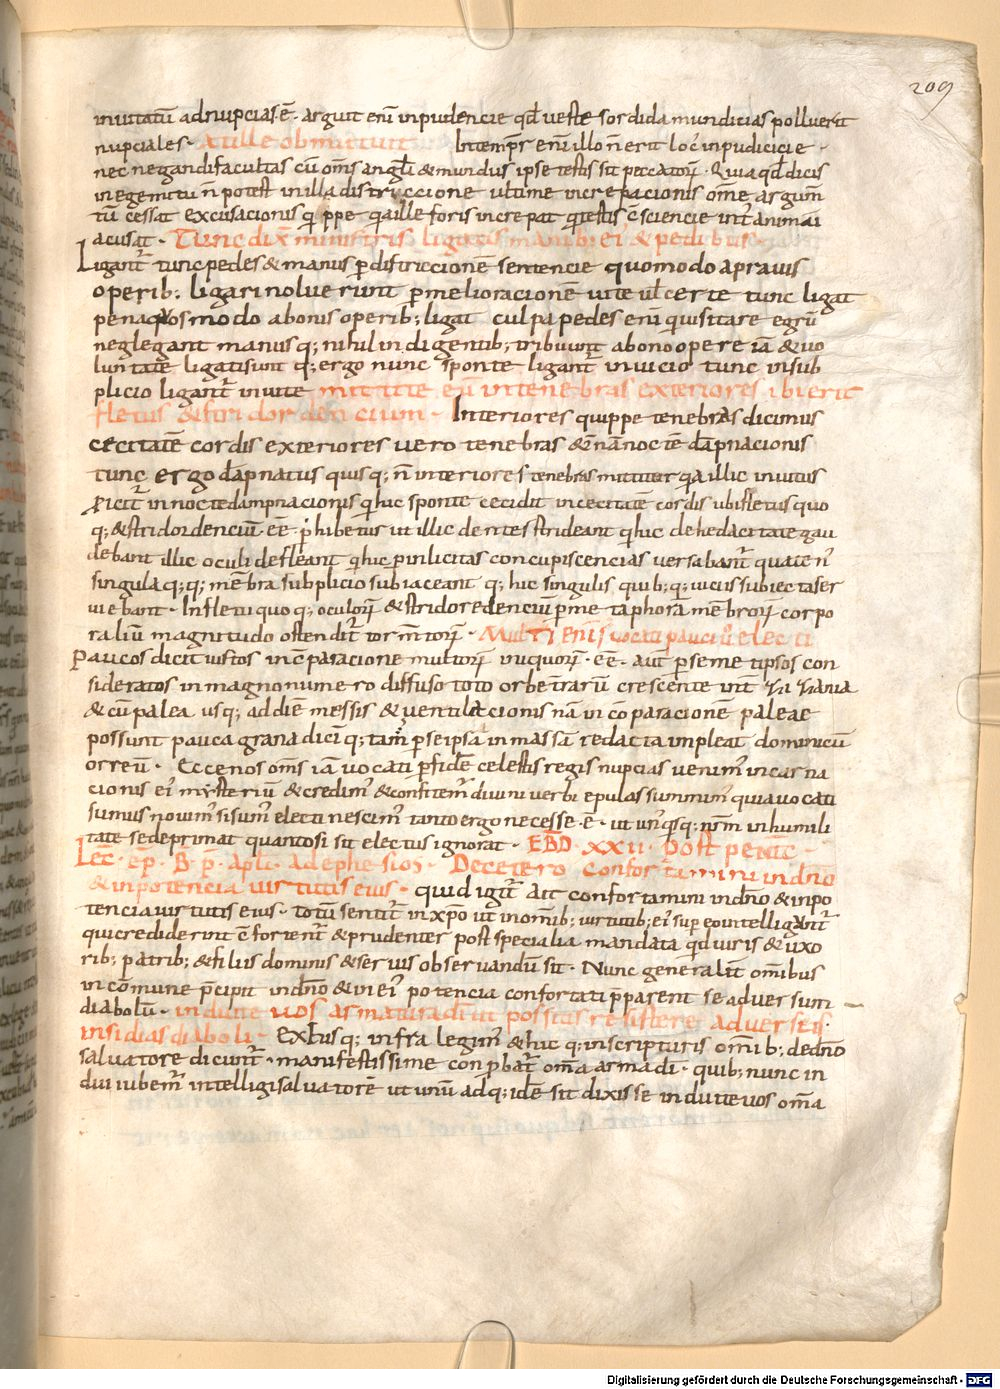 209
inuitatū adnupcias ē· arguit enī inpudencie qđ ueste sordida mundicias polluerit
nupciales· atille obmutuit Intempr̄ enī illo n̄ erit loc' inpudicicie·
nec negandi facultas cū om̄s angli & mundus ipse testis sit peccatorꝝ· Quia qđ dicis
inegemitu n̄ potest inilla districcione ultime increpacionis om̄e argum̄
tū cessat excusacionis q̄ppe q̄aille foris increpat q̄ testis c̄sciencie int' animā
acusat· Tunc dix̄ ministris ligatis manib; ei' & pedibus·
Ligant' tunc pedes & manus p̄districcionē sentencie quomodo aprauis
operib; ligari noluerunt p̄melioracionē uite ul certe tunc ligat
pena quos modo abonis operib; ligat culpa pedes enī qui uisitare egrū
neglegant manusq; nihil indigentib; tribuunt abono opere iā & uo
luntate ligati sunt q; ergo nunc sponte ligant' inuicio tunc insub
plicio ligant' inuite mittite eū intenebras exteriores ibi erit
fletus & stridor dencium· Interiores quippe tenebras dicimus
cecitatē cordis exteriores uero tenebras & n̄anoctē dāpnacionis
tunc ergo dāpnatus quisq; n̄ interiores tenebras mittitur q̄a illic inuitus
p̄icit' in noctē dampnacionis q̄ hic sponte cecidit incecitatē cordis ubi fletus quo
q; & stridor denciū· ēē· p̄hibetur ut illic dentes strideant q̄ hic de hedacitate gau
debant illic oculi defleant q̄ hic p̄inlicitas concupiscencias uersabant' quaten'
singula q;q; mēbra subplicio subiaceant q; hic singulis quib;q; uiciis subiecta ser
uiebant· Infletu quoq; oculorꝝ & stridore denciū p̄metaphorā mēbrorꝝ corpo
raliū magnitudo ostendit' torm̄torꝝ· Multi eni s̄ uocati pauci ū electi
Paucos dicit iustos inc̄paracione multorꝝ iniquorꝝ· ēē· aut p̄semetipsos con
sideratos in magno numero diffuso toto orbe t̄rarū crescente int' zizania
& cū palea usq; addiē messis & uentilacionis nā in cōparacionē paleae
possunt pauca grana dici q; tam̄ p̄seipsa in massā redacta impleat dominicū
orreū· Ecce nos om̄s iā uocati p̄fidē celestis regis nupcias uenim' incarna
cionis ei' mysteriū & credim' & confitem' diuini uerbi epulas summim' quia uocati
sumus nouim' si sum' electi nescim' tanto ergo necesse· ē· ut un'q̄sq; nr̄m inhumili
tate se deprimat quanto si sit electus ignorat· EBD· XXII· post pentc̄·
Lec̄· ep̄· B· p· apli· ad ephesios· De cetero confortamini indn̄o
& inpotencia uirtutis eius· quid igit' ait confortamini indn̄o & inpo
tencia uirtutis eius· totū sentit' in xp̄o ut inomib; uirtutib; ei' super eo intelligant'
qui crediderint ē fortent' & prudenter post specialia mandata q̄d uiris & uxo
rib; patrib; & filiis dominis & seruis obseruandū sit· Nunc generalit̄ omibus
in cōmune p̄cipit indn̄o & in ei' potencia confortati p̄parent se aduersum
diabolū· induite uos armatura dī ut possitis resistere aduersus
insidias diaboli· Exhisq; infra legim' & hic q; inscripturis omib; dedn̄o
saluatore dicunt'· manifestissime conp̄bat' om̄a arma dī· quib; nunc in
dui iubem̄ intelligi saluatorē ut unū adq; idē sit dixisse induite uos om̄a
Digitalisierung gefördert durch die Deutsche Forschungsgemeinschaft - DFG